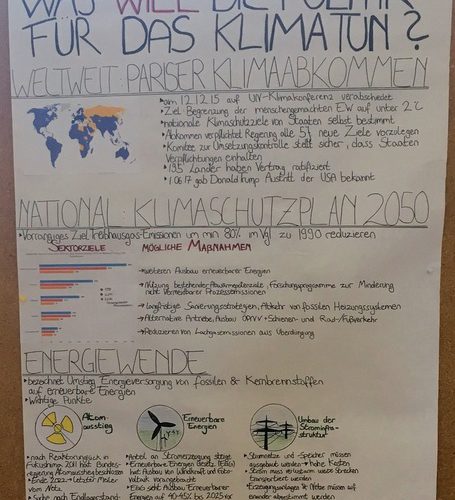 WAS WILL DIE POLITIK
FÜR DAS KLIMA TUN?
WELTWEIT: PARISER KLIMAABKOMMEN
am 12.12.15 auf UN-Klimakonferenz verabschiedet
Ziel: Begrenzung der menschengemachten EW auf unter 2°C
nationale Klimaschutzziele von Staaten selbst bestimmt
Abkommen verpflichtet Regierung alle 5J neue Ziele vorzulegen
Komitee zur Umsetzungskontrolle stellt sicher, dass Staaten
Verpflichtungen einhalten
195 Länder haben Vertrag ratifiziert
1.06.17 gab Donald Trump Austritt der USA bekannt
NATIONAL: KLIMASCHUTZPLAN 2050
Vorrangiges Ziel: Treibhausgas-Emissionen um min. 80% im Vgl. zu 1990 reduzieren
SEKTORZIELE MÖGLICHE MAßNAHMEN
weiteren Ausbau erneuerbarer Energien
Nutzung bestehender Abwärmepotenziale, Forschungsprogramme zur Minderung
nicht vermeidbarer Prozessemissionen
langfristige Sanierungsstrategien, Abkehr von fossilen Heizungssystemen
Alternative Antriebe, Ausbau ÖPNV + Schienen- und Rad-/Fußverkehr
Reduzieren von Lachgasemissionen aus Überdüngung
ENERGIEWENDE
bezeichnet Umstieg Energieversorgung von fossilen & Kernbrennstoffen
auf erneuerbare Energien
Wichtige Punkte
Atom-
ausstieg
Erneuerbare
Energien
Umbau der
Strominfra-
struktur
nach Reaktorunglück in
Fukushima 2011 hat Bundes-
regierung Atomausstieg beschlossen
Ende 2022 letzter Meiler
vom Netz
Suche nach Endlagerstand-
Anteil an Stromerzeugung steigt
Erneuerbare Energien Gesetz (EEG)
hat Ausbau von Windkraft und Foto-
voltaik vorangebracht
Ziel: Anteil Erneuerbarer
Energien auf 40-45% bis 2025
Stromnetze und Speicher müssen
ausgebaut werden → hohe Kosten
Strom muss
müssen auf
einander abgestimmt werden